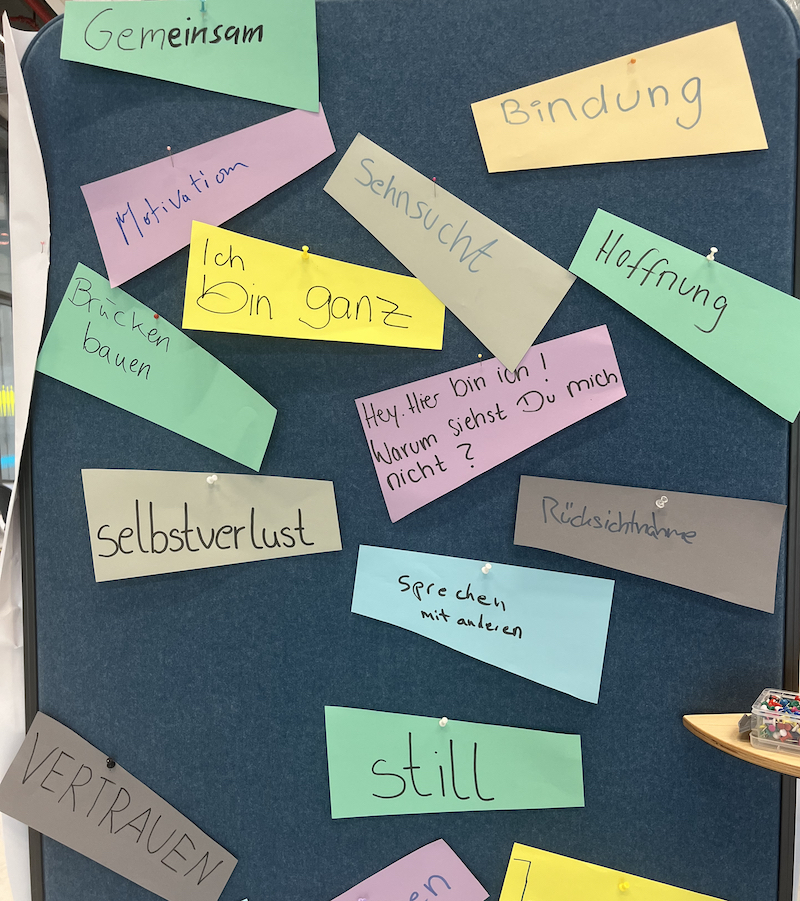 Gemeinsam
Bindung
Motivation
Sehnsucht
Ich
bin ganz
Hoffnung
Brücken
bauen
Hey. Hier bin ich!
Warum siehst Du mich
nicht?
selbstverlust
Rücksichtnahme
sprechen
mit anderen
still
VERTRAUEN